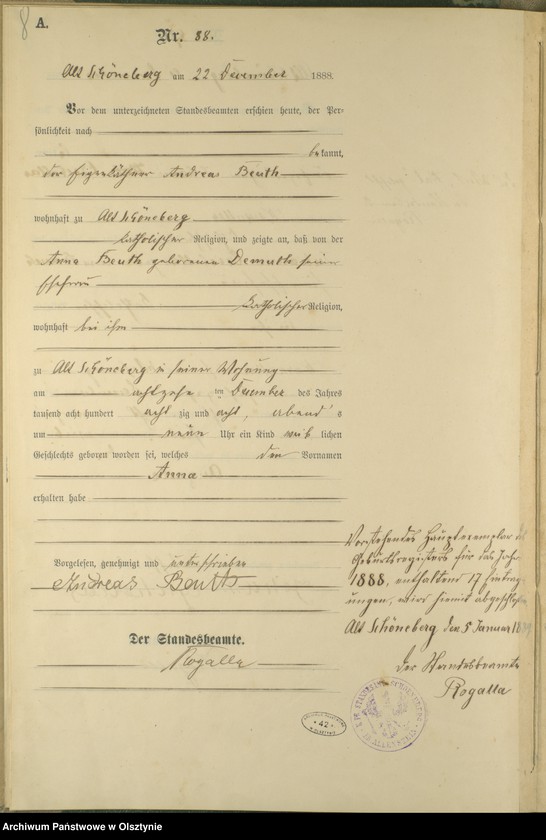 8
A.
Nr. 88.
Alt Schöneberg am 22 December 1888.
Vor dem unterzeichneten Standesbeamten erschien heute, der Per-
sönlichkeit nach
bekannt,
der Eigenkäthner Andreas Beuth
wohnhaft zu Alt Schöneberg
katholischer Religion, und zeigte an, daß von der
Anna Beuth geborenen Demuth seiner
Ehefrau
katholischer Religion,
wohnhaft bei ihm
zu Alt Schöneberg in seiner Wohnung
am achtzehn ten December des Jahres
tausend acht hundert acht zig und acht, abend s
um neun Uhr ein Kind weib lichen
Geschlechts geboren worden sei, welches den Vornamen
Anna
erhalten habe
Vorgelesen, genehmigt und unterschrieben
Andreas Beuth
Der Standesbeamte.
Rogalla
Vorstehendes Hauptexemplar des
Geburtsregisters für das Jahr
1888, enthaltend 17 Eintrag
ungen, wird hiermit abgeschlossen
Alt Schöneberg den 5 Januar
der Standesbeamte
Rogalla
42
Archiwum Państwowe w Olsztynie